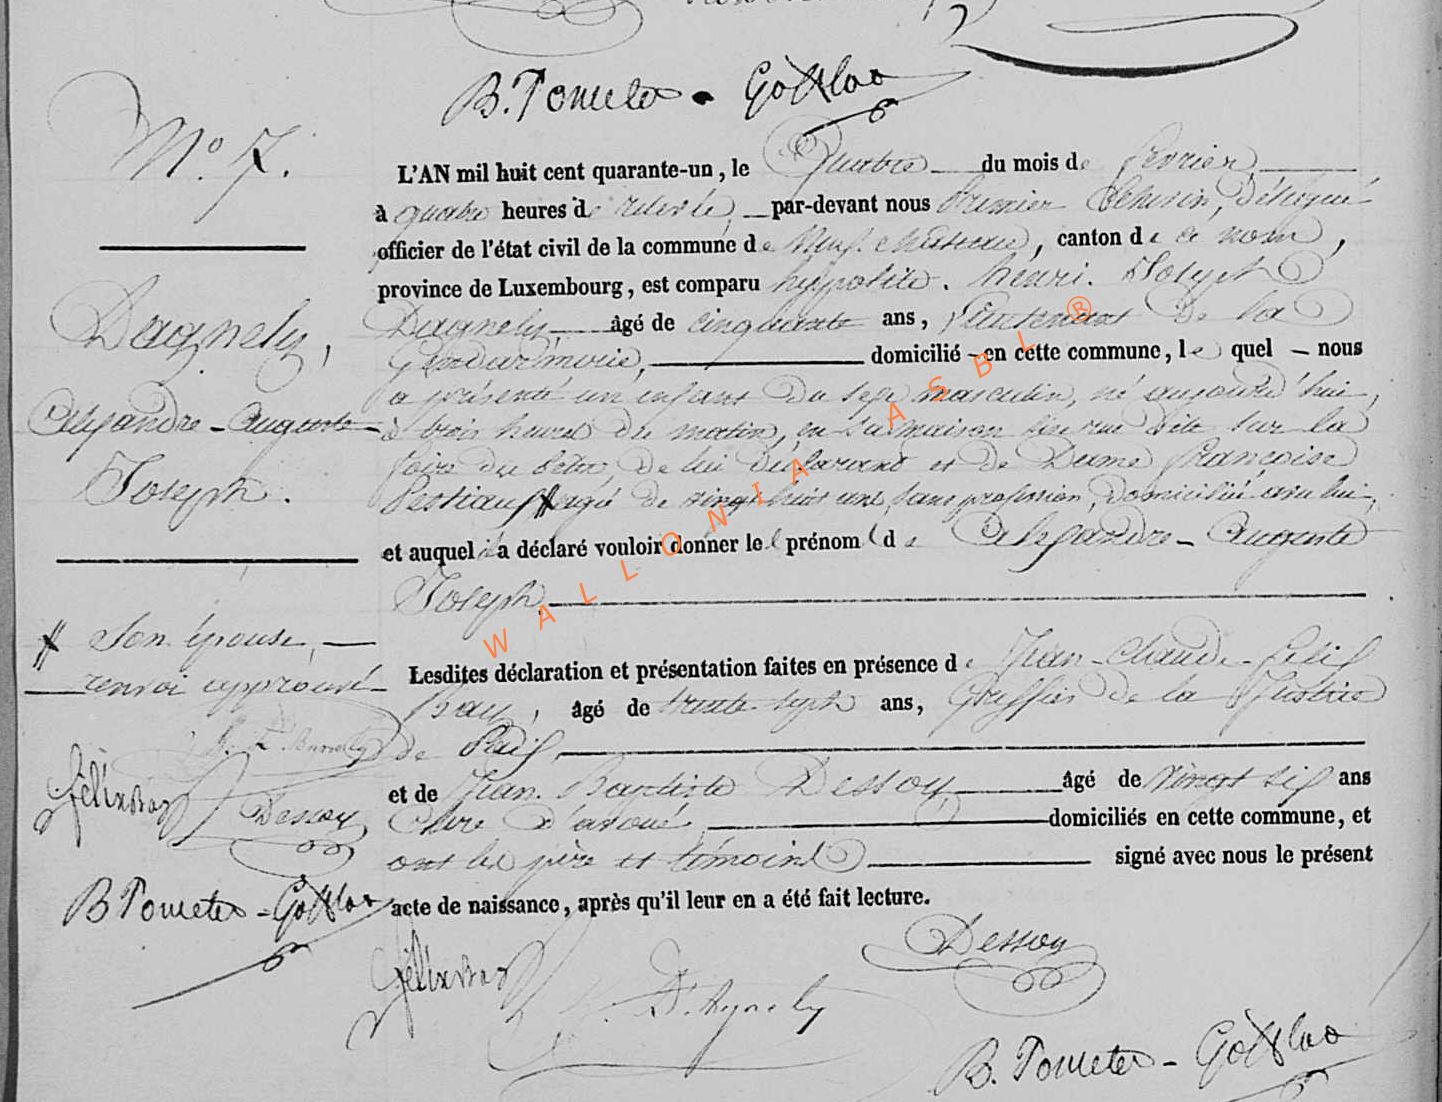 B. Pometer - Gofflot
N.° 7.
L'AN mil huit cent quarante-un, le Quatre du mois de février,
à quatre heures de relevée, par-devant nous Premier Echevin, délégué
officier de l'état civil de la commune de Neufchateau, canton de ce nom,
province de Luxembourg, est comparu hyppolite. henri. Joseph
Dagnely, âgé de cinquante ans, Lieutenant de la
Gendarmerie, domicilié en cette commune, le quel nous
a présenté un enfant du sexe masculin, né aujourd'hui,
à trois heures du matin, en sa maison sise rue dite sur la
foire du Père de lui déclarant et de Dame Françoise
Pestiaux # agé de vingt huit ans, sans profession, domiciliée avec lui,
et auquel il a déclaré vouloir donner les prénoms de Alexandre-Auguste
Joseph,
Dagnely,
Alexandre-Auguste
Joseph.
# Son épouse,
renvoi approuvé
FélixBas
Dessoy
B Pometer - Gofflot
Lesdites déclaration et présentation faites en présence de Jean-Claude-Félix
Bas, âgé de trente-sept ans, Greffier de la Justice
de Paix,
et de Jean-Baptiste Dessoy, âgé de vingt six ans
Clerc d'avoué, domiciliés en cette commune, et
ont les père et témoins signé avec nous le présent
acte de naissance, après qu'il leur en a été fait lecture.
Dessoy
FélixBas
D'Agnely
B. Pometer - Gofflot
WALLONIA ASBL ®